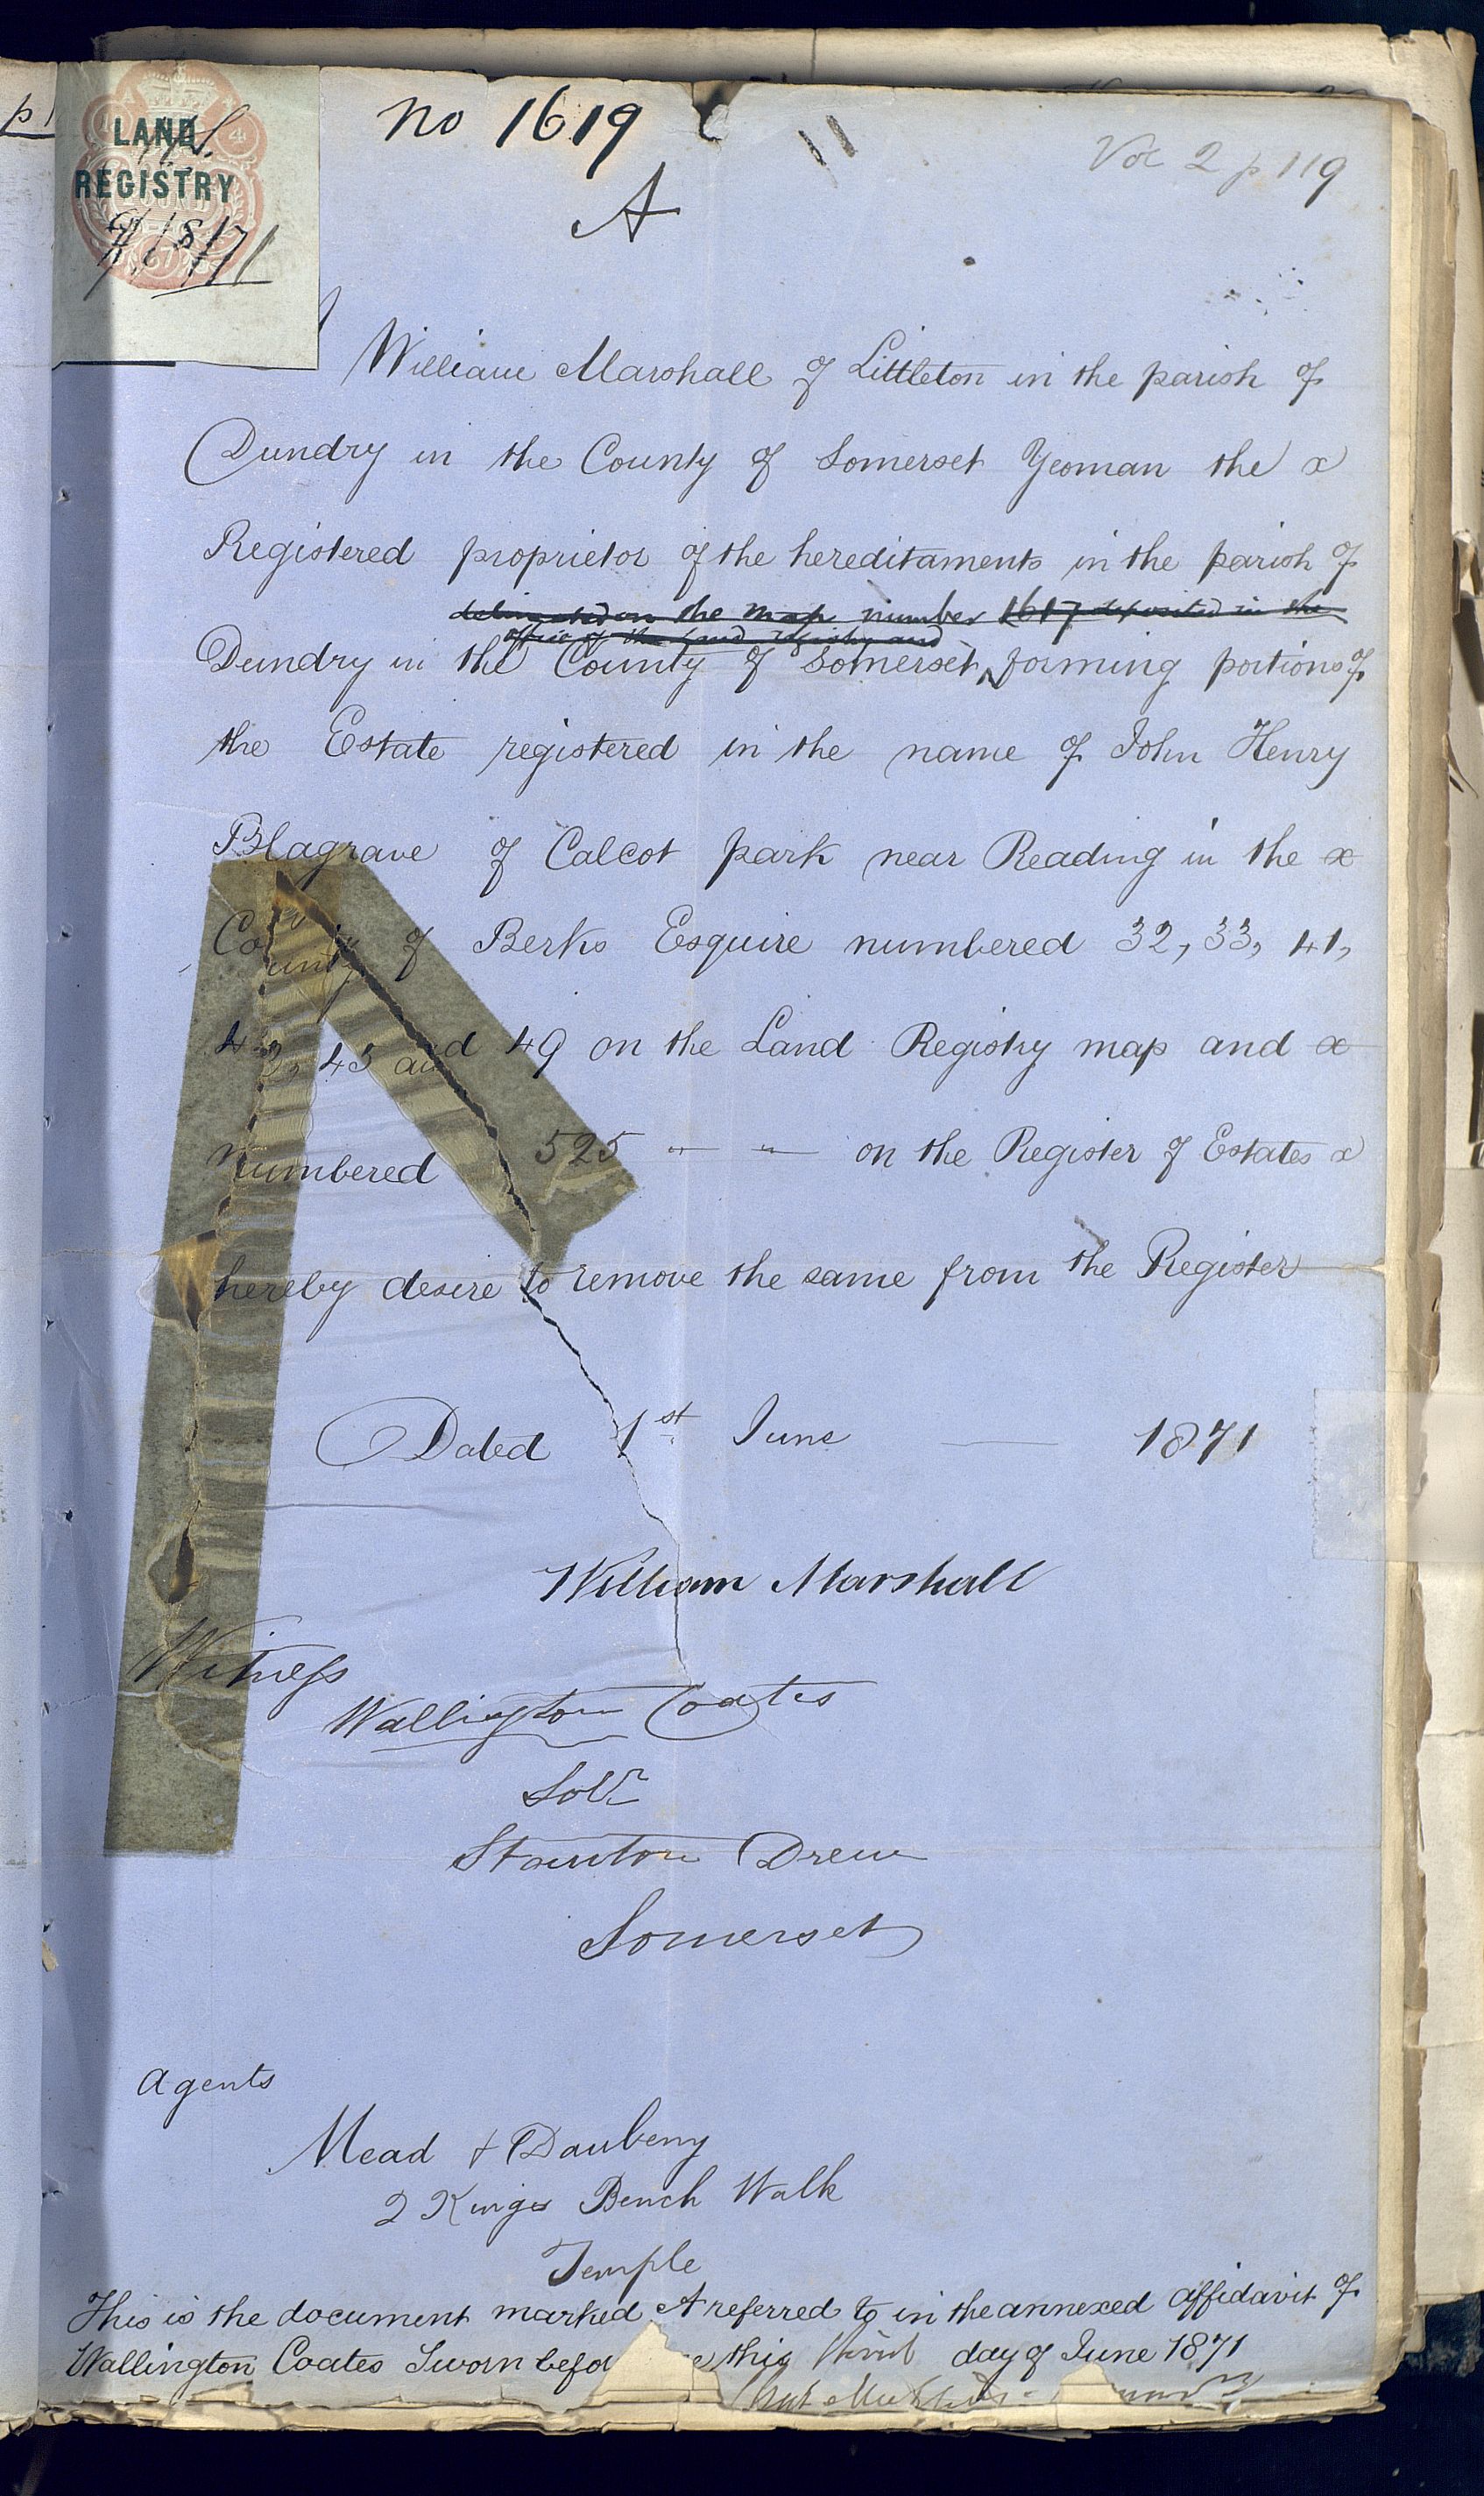 no 1619
11
Vol 2 p 119
A
LAND
REGISTRY
I William Marshall of Littleton in the parish of
Dundry in the County of Somerset Yeoman the x
Registered proprietor of the hereditaments in the parish of
delineated on the map number 1617 deposited in the
office of the Land Registry and
Dundry in the County of Somerset, forming portions of
the Estate registered in the name of John Henry
Blagrave of Calcot park near Reading in the x
County of Berks Esquire numbered 32, 33, 41,
42, 43 and 49 on the Land Registry map and x
numbered 525 " " on the Register of Estates x
hereby desire to remove the same from the Register
Dated 1st June 1871
William Marshall
Witness
Wallington Coates
Solr
Stanton Drew
Somerset
Agents
Mead & Daubeny
2 Kings Bench Walk
Temple
This is the document marked A referred to in the annexed affidavit of
Wallington Coates Sworn before me this day of June 1871